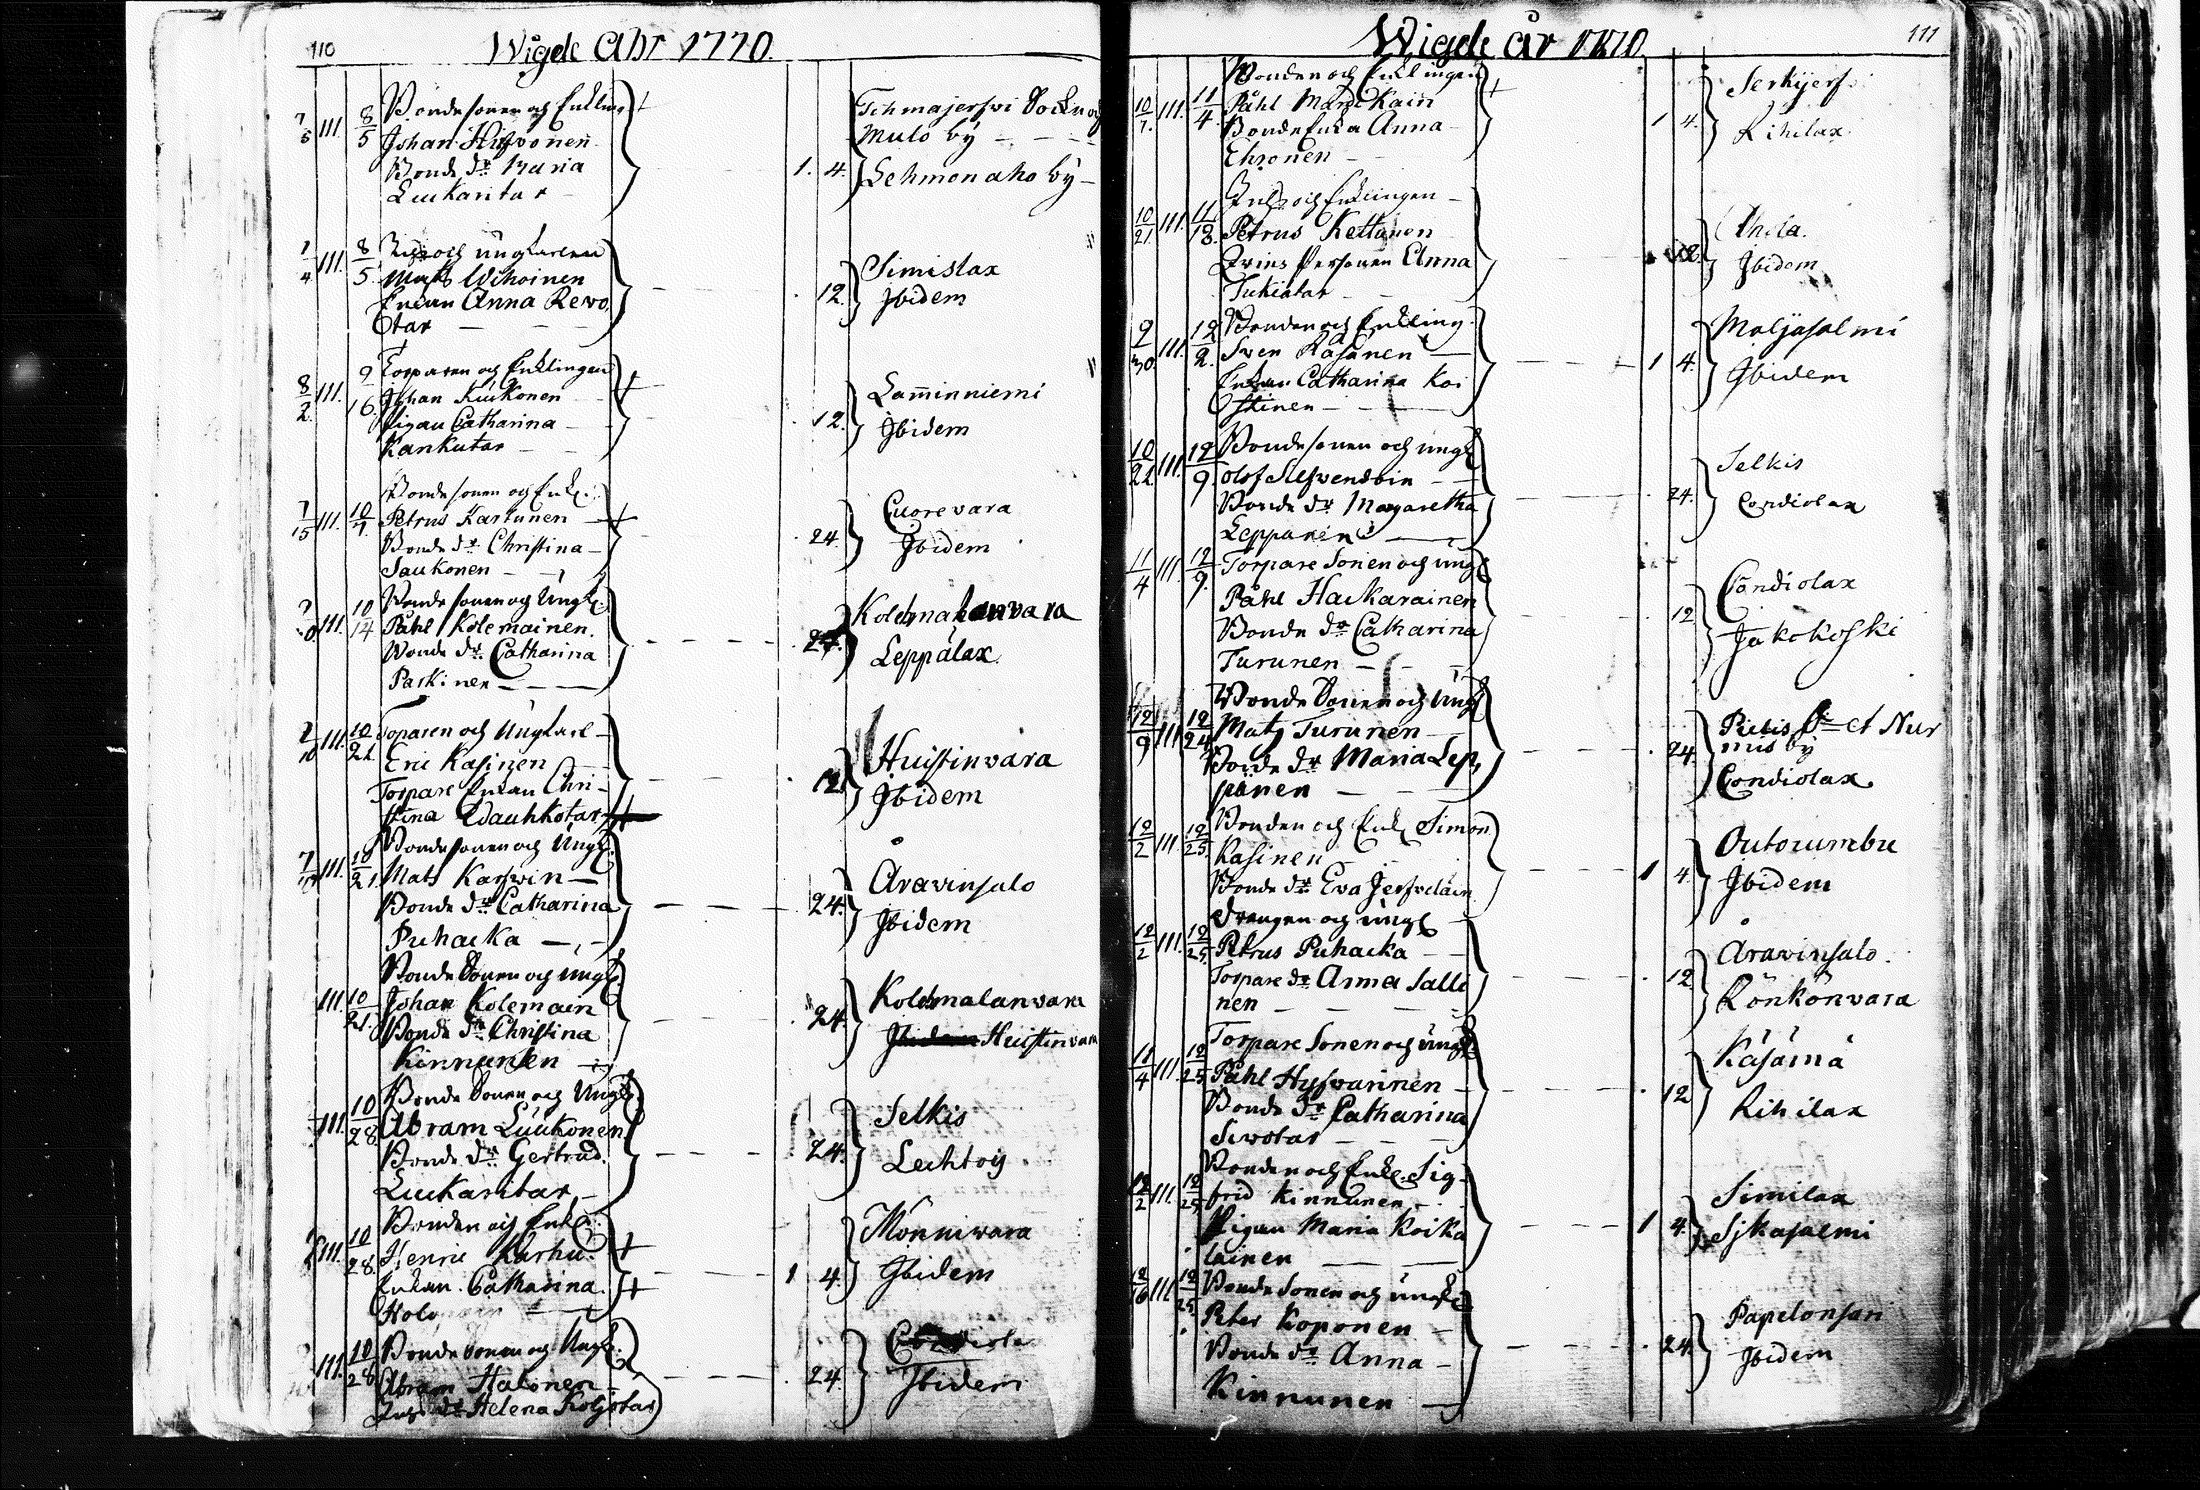 110
Wigde Ahr 1770.
8/5
Bonde sonen och Enkling
Johan Hyfvonen
Bonde dr Maria
Luukantar
1. 4.
Tohmajerfvi Sockn och
Mulo by
Lehmonaho by
1/4 III. 8/5
Inhs och ungkarlen
Mats Wihoinen
Enkan Anna Revo
tar
12.
Simislax
Jbidem
8/2. III. 9/16.
Torparen och Enklingen
Johan Kiukonen
Pigan Catharina
Kankutar
12.
Laminniemi
Jbidem
7/15 III. 10/7.
Bonde sonen och Enkl.
Petrus Kartunen
Bonde dr Christina
Saukonen
24.
Cuorevara
Jbidem
III. 10/14
Bonde sonen og Ungk.
Påhl Kolemainen.
Bonde dr Catharina
Parkinen
24.
Leppälax.
III. 10/21
Toparen och Ungkarl
Eric Kasinen
Torpare Enkan Chri
stina Wauhkotar
12.
Huistinvara
Jbidem
III. 10/21.
Bonde sonen och Ungk.
Mats Karfvin
Bonde dr Catharina
Puhacka
24.
Aravinsalo
Jbidem
III. 10/21.
Bonde Sonen og Ungk.
Johan Kolemain
Bonde dr Christina
Kinnunen
24.
Kolehmalanvara
Huistinvara
III. 10/28
Bonde Sonen och Ungk.
Abram Luukonen
Bonde dr Gertrud.
Luukaritar
24.
Selkis
Lechtoy
III. 10/28.
Bonden och Enkl.
Henric Karhu.
Enkan Catharina
1 4.
Mönnivara
Jbidem
III. 10/28
Bonde sonen og Ungk.
Abram Halonen
Inhs dr Helena Koljotar
24.
Jbidem
111
Wigde år 1770.
10/7. III. 11/4.
Bonden och Enklingen
Påhl Mardikain
Bonde Enka Anna
Ehronen
1 4.
Serkijerf
Rihilax
10/21. III. 11/18.
Inhs och Enklingen
Petrus Kettunen
Qvins Personen Anna
Tukiatar
Jbidem
9/30. III. 12/2.
Bonden och Enkling
Sven Räsänen
Enkan Catharina Koi
stinen
1 4.
Maljasalmi
Jbidem
10/22 III. 12/9.
Bonde sonen och ungk
Olof Slefvendoin
Bonde dr Margaretha
Leppanen
24.
Selkis
Condiolax
11/4 III. 12/9.
Torpare Sonen och ungk
Påhl Hackarainen
Bonde dr Catharina
Turunen
12
Condiolax
Jakokoski
12/9 III. 12/24
Bonde Sonen och Ungk
Mats Turunen
Bonde dr Maria Lep
pänen
24.
et Nur
mis by
Condiolax
12/2 III. 12/25.
Bonden och Enk Simon
Kasinen
Bonde dr Eva Jerfveläin
1 4.
Outocumbu
Jbidem
12/2 III. 12/25.
Drengen og ungk
Petrus Puhacka
Torpare dr Anna Salli
nen
12
Aravinsalo.
Rönkönvara
11/4 III. 12/25
Torpare Sonen och ungk
Påhl Hyfvarinen
Bonde dr Catharina
Sivotar
12
Käsämä
Rihilax
12/2 III. 12/25
Bonden och Enk. Sig
frid Kinnunen
Pigan Maria Koika
lainen
1 4.
Similax
Sjkasalmi
12/16 III. 12/25.
Bonde Sonen och ungk
Peter Koponen
Bonde dr Anna
Kinnunen
24.
Papelonsari
Jbidem